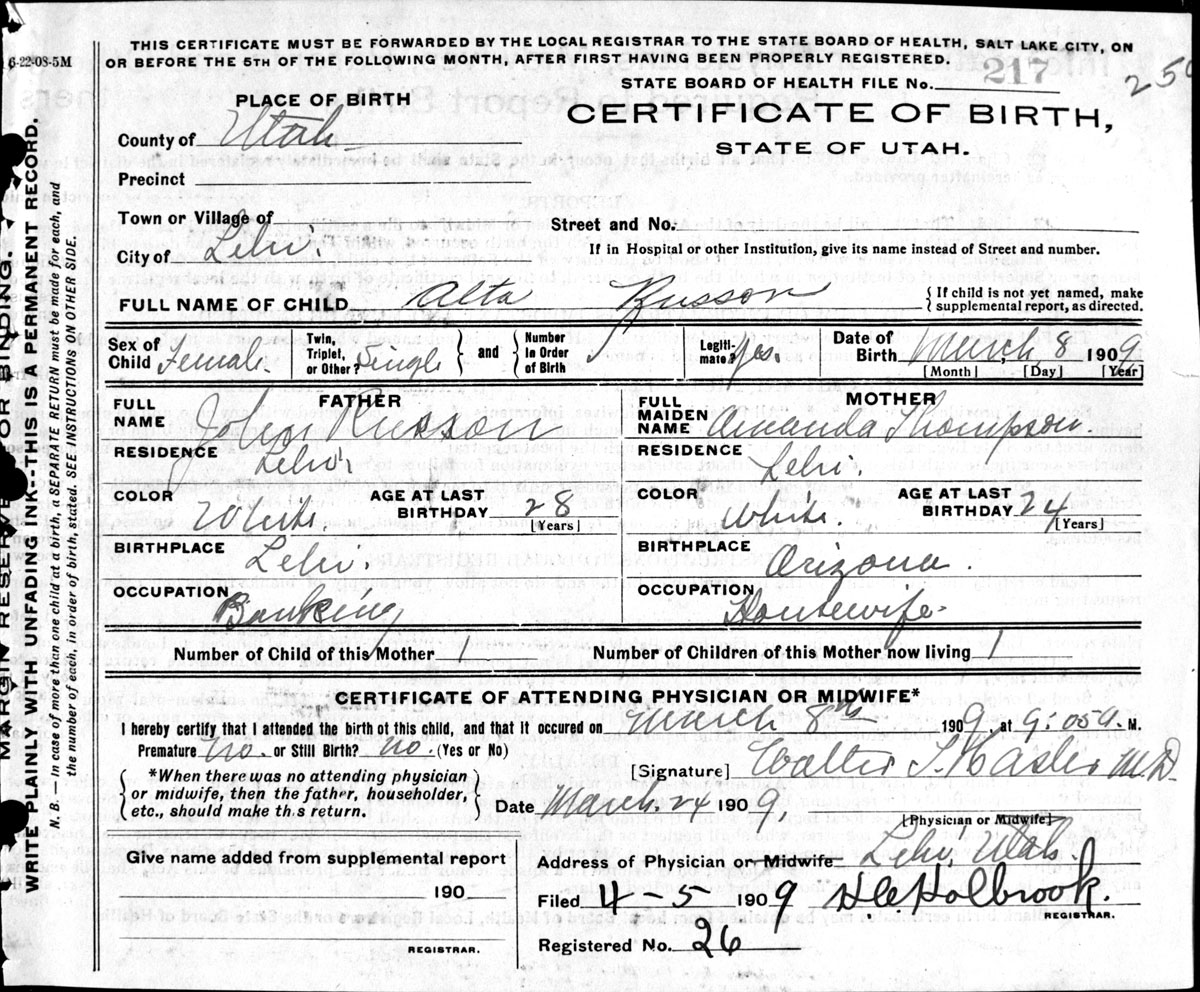 THIS CERTIFICATE MUST BE FORWARDED BY THE LOCAL REGISTRAR TO THE STATE BOARD OF HEALTH, SALT LAKE CITY, ON
OR BEFORE THE 5TH OF THE FOLLOWING MONTH, AFTER FIRST HAVING BEEN PROPERLY REGISTERED.
6-22-08-5M
STATE BOARD OF HEALTH FILE No. 217
250
PLACE OF BIRTH
CERTIFICATE OF BIRTH,
STATE OF UTAH.
County of Utah
Precinct
Town or Village of
Street and No.
City of Lehi.
If in Hospital or other Institution, give its name instead of Street and number.
FULL NAME OF CHILD Alta Russon
{If child is not yet named, make supplemental report, as directed.
Sex of Child Female. Twin, Triplet, or Other? Single } and { Number In Order of Birth Legiti-mate? Yes. Date of Birth March 8 1909
[Month] [Day] [Year]
FATHER
FULL NAME John Russon
RESIDENCE Lehi
COLOR White AGE AT LAST BIRTHDAY 28
[Years]
BIRTHPLACE Lehi.
OCCUPATION Banking
MOTHER
FULL MAIDEN NAME Amanda Thompson
RESIDENCE Lehi.
COLOR White. AGE AT LAST BIRTHDAY 24
[Years]
BIRTHPLACE Arizona.
OCCUPATION Housewife
Number of Child of this Mother 1 Number of Children of this Mother now living 1
CERTIFICATE OF ATTENDING PHYSICIAN OR MIDWIFE*
I hereby certify that I attended the birth of this child, and that it occured on March 8th 1909, at 9:05 a. M.
Premature No. or Still Birth? No. (Yes or No)
*When there was no attending physician
or midwife, then the father, householder,
etc., should make this return.
[Signature] Walter T. Hasler M.D.
Date March, 24 1909
[Physician or Midwife]
Give name added from supplemental report
190
REGISTRAR.
Address of Physician or Midwife Lehi, Utah.
Filed 4-5 1909 Holbrook.
REGISTRAR.
Registered No. 26
MARGIN RESERVED FOR BINDING.
WRITE PLAINLY WITH UNFADING INK--THIS IS A PERMANENT RECORD.
N. B. — In case of more than one child at a birth, a SEPARATE RETURN must be made for each, and
the number of each, in order of birth, stated. SEE INSTRUCTIONS ON OTHER SIDE.